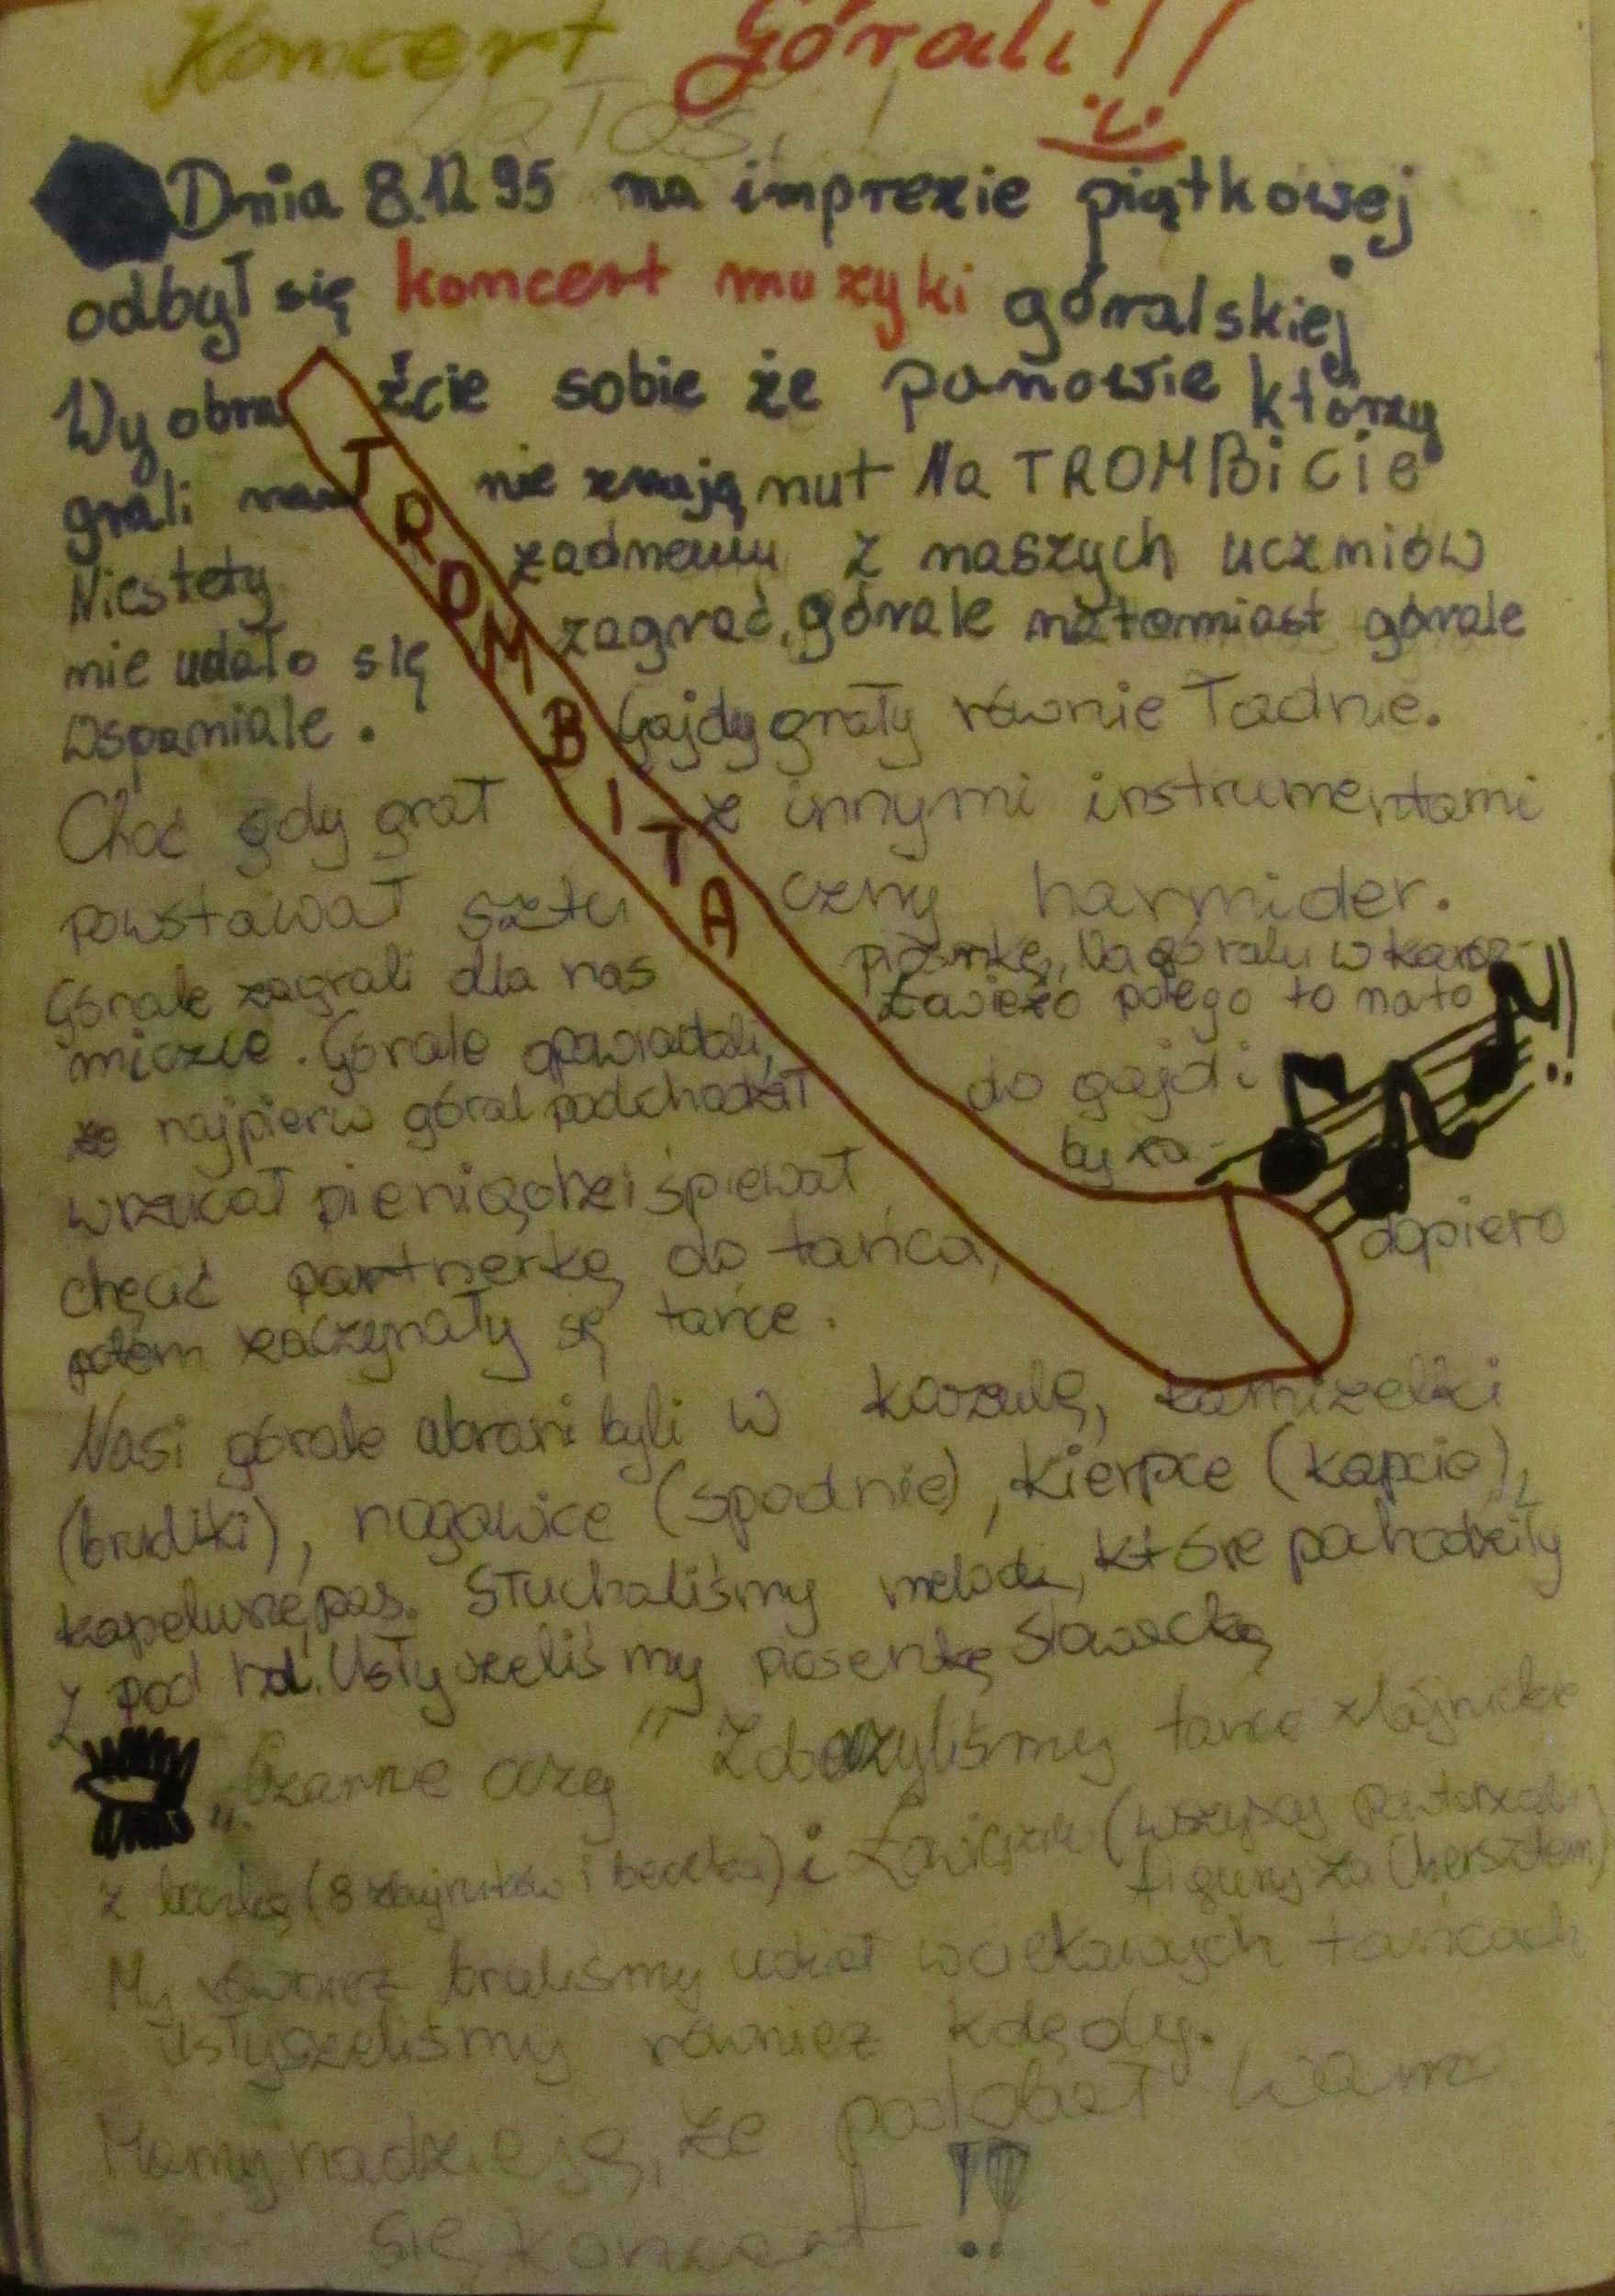 Koncert Górali!!
Dnia 8.12 95 na imprezie piątkowej
odbył się koncert muzyki góralskiej
Wyobraźcie sobie że panowie którzy
grali nam nie znają nut Na TROMBiCiE
Niestety żadnemu z naszych uczniów
nie udało się zagrać, górale natomiast górale
wspaniale. Gajdy grały równie ładnie.
Choć gdy grał z innymi instrumentami
powstawał sztuczny harmider.
Górale zagrali dla nas piosnkę, Na góralu w karcz-
miczce. Górale opowiadali, zawiezo potego to nato
że najpierw góral podchodził do gajd i
wrzucał pieniądze i śpiewał by za-
chęcić partnerkę do tańca, dopiero
potem zaczynały sę tańce.
TROMBITA
Nasi górale ubrani byli w koszulę, kamizelki
(brudiki), nogawice (spodnie), kierpce (kapcie),
kapelusze, pas. Słuchaliśmy melodi, które pochodziły
z pod hal. Usłyszeliśmy piosenkę słowacką
„Czarne oczy" Zobaczyliśmy tańce zbójnickie
z beczką (8 zbójników i beczka) i (wszyscy powtarzali
figury za Chersztem)
My również braliśmy udział w ciekawych tańcach
Usłyszeliśmy również kolędy.
Mamy nadzieję, że podobał wam
się koncert!!